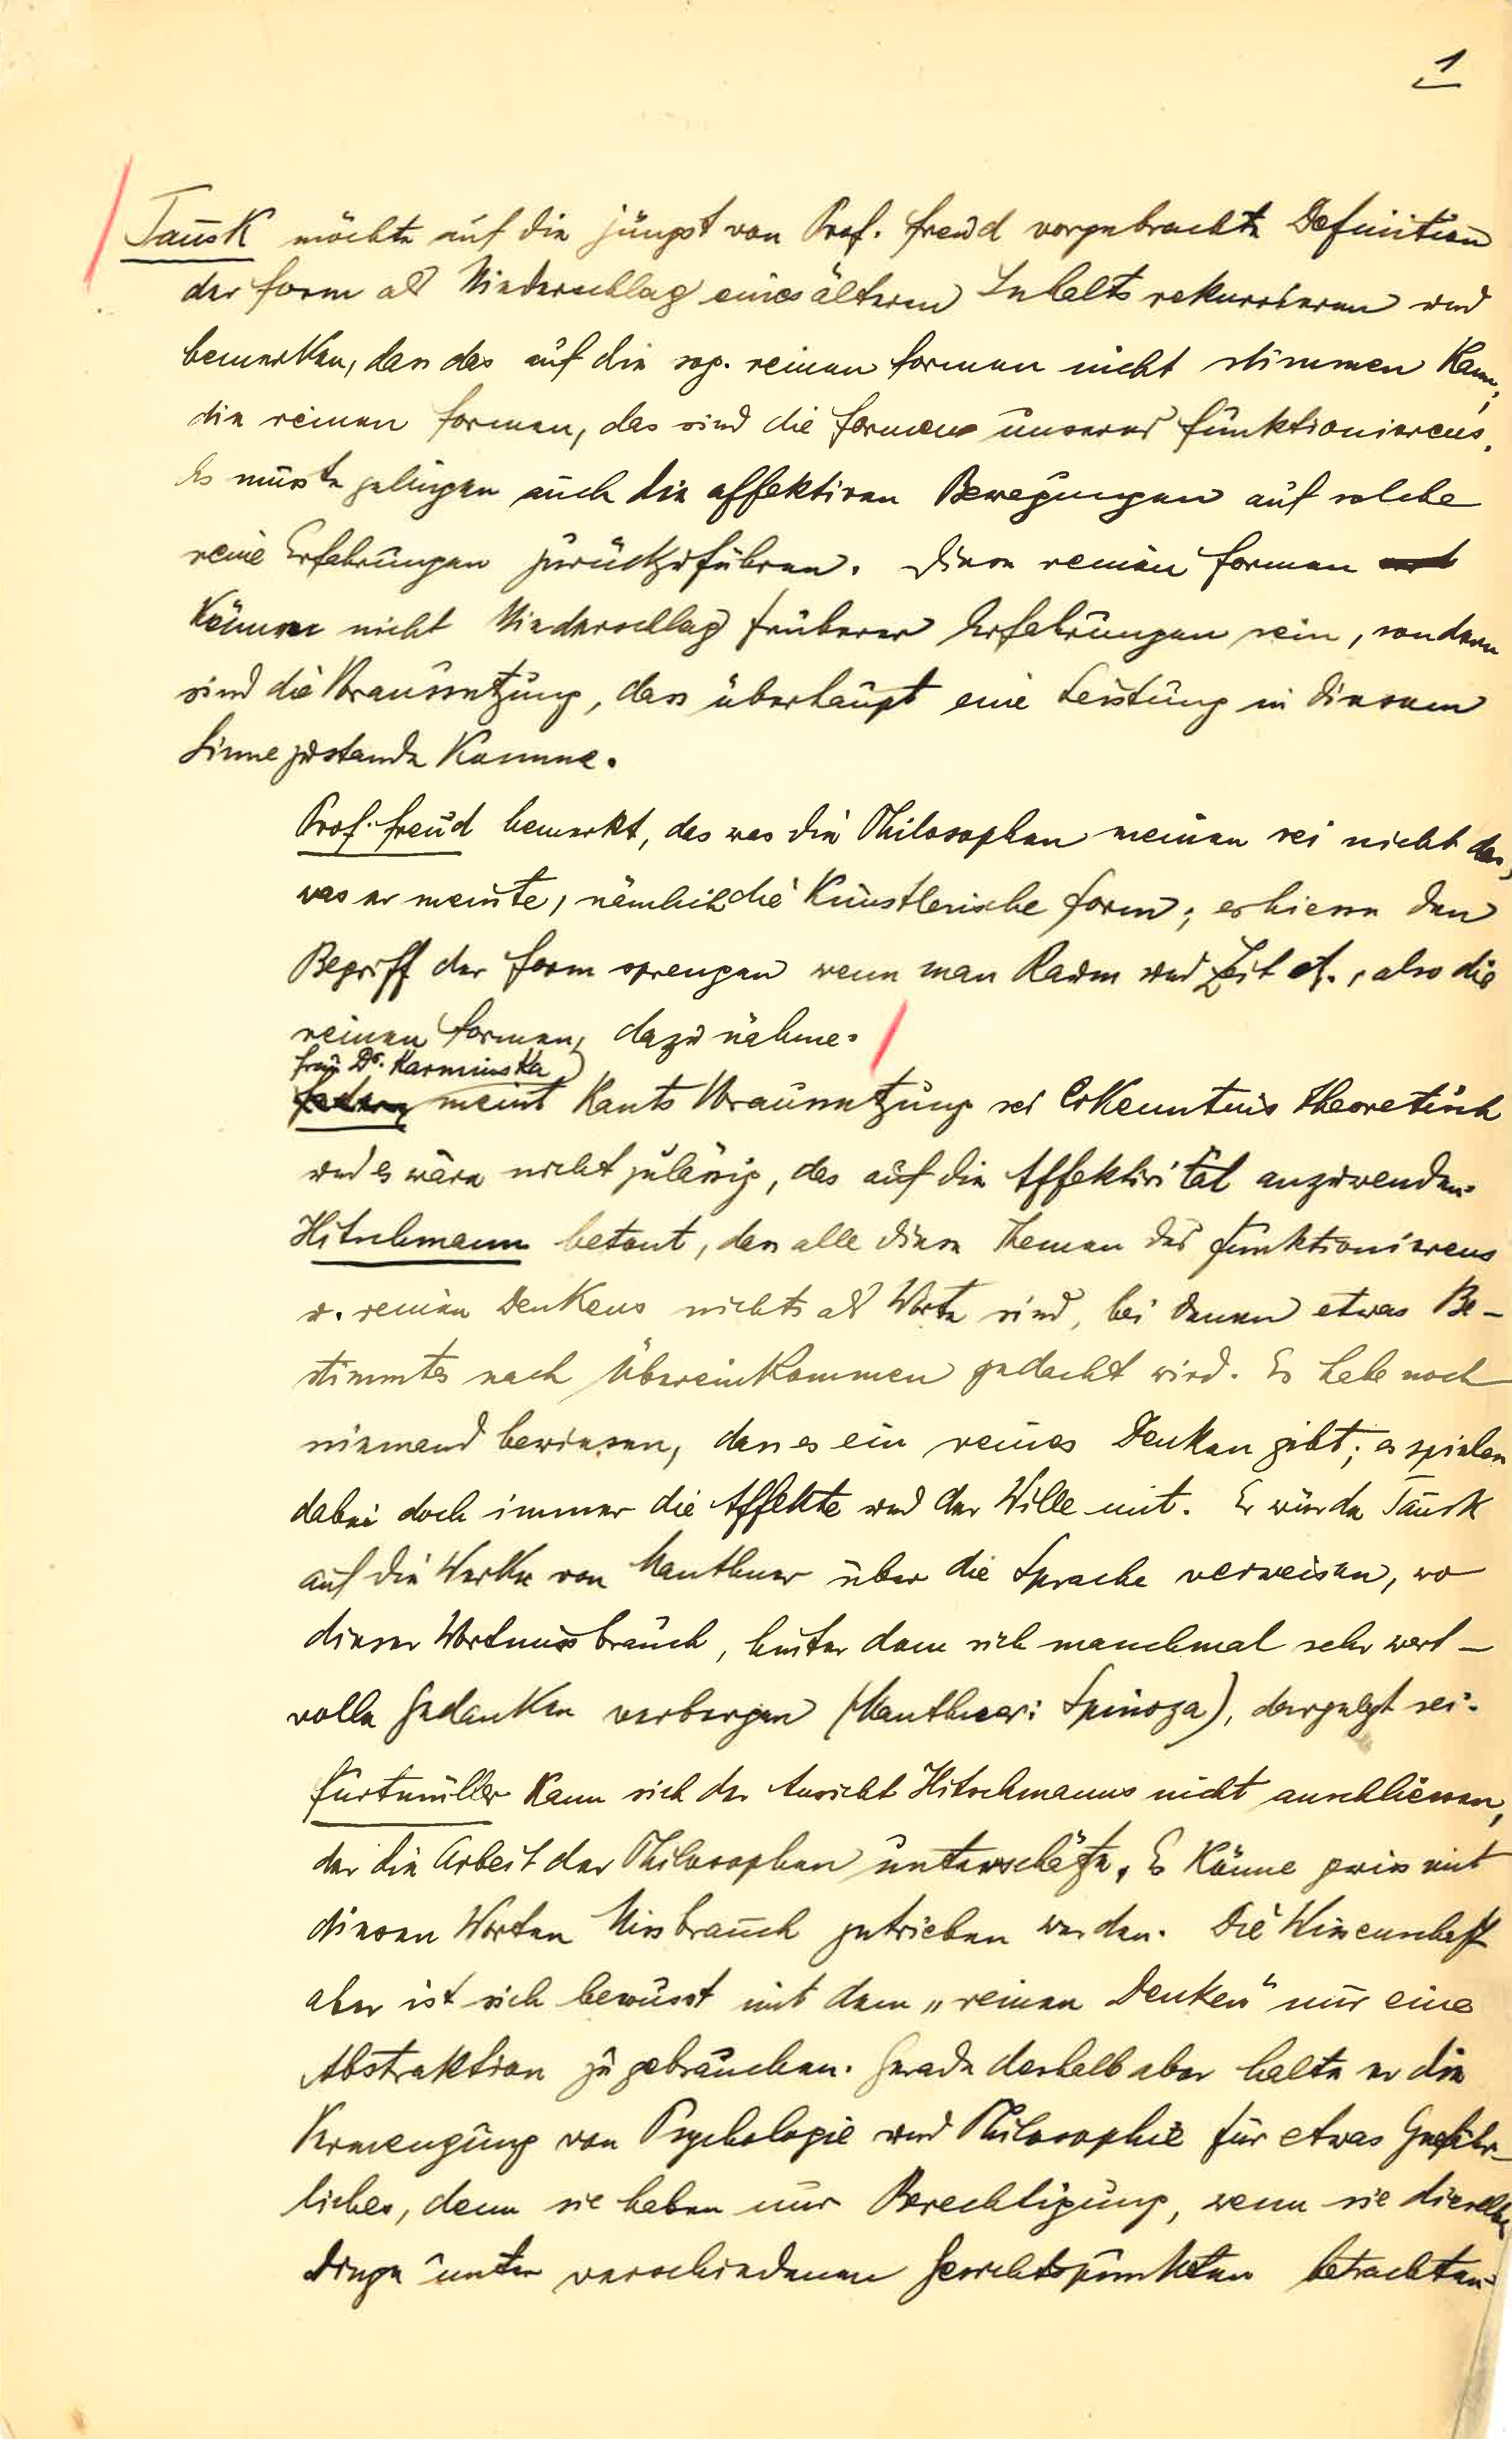 1
Tausk möchte auf die jüngst von Prof. Freud vorgebrachte Definition
der Form als Niederschlag eines älteren Inhalts rekurrieren und
bemerken, dass das auf die sog. reinen Formen nicht stimmen kann;
die reinen Formen, das sind die Formen unseres Funktionierens.
Es müsste gelingen auch die affektiven Bewegungen auf solche
reine Erfahrungen zurückzuführen. Diese reinen Formen
können nicht Niederschlag früherer Erfahrungen sein, sondern
sind die Voraussetzung, dass überhaupt eine Leistung in diesem
Sinne zustande komme.
Prof. Freud bemerkt, das was die Philosophen meinen sei nicht das,
was er meinte, nämlich die künstlerische Form; es hiesse den
Begriff der Form sprengen wenn man Raum und Zeit etc., also die
reinen Formen, dazu nähme.
Frau Dr. Karminska
meint Kants Voraussetzung sei Erkenntnis theoretisch
und es wäre nicht zulässig, das auf die Affektivität anzuwenden.
Hitschmann betont, dass alle diese Themen des Funktionierens
u. reinen Denkens nichts als Worte sind, bei denen etwas Be-
stimmtes nach Übereinkommen gedacht wird. Es habe noch
niemand bewiesen, dass es ein reines Denken gibt; es spielen
dabei doch immer die Affekte und der Wille mit. Er würde Tausk
auf die Werke von Mauthner über die Sprache verweisen, wo
dieser Wortmissbrauch, hinter dem sich manchmal sehr wert-
volle Gedanken verbergen (Mauthner: Spinoza), dargelegt sei.
Furtmüller kann sich der Ansicht Hitschmanns nicht anschliessen,
der die Arbeit der Philosophen unterschätze. Es könne gewiss mit
diesen Worten Missbrauch getrieben werden. Die Wissenschaft
aber ist sich bewusst mit dem „reinen Denken" nur eine
Abstraktion zu gebrauchen. Gerade deshalb aber halte er die
Vermengung von Psychologie und Philosophie für etwas Gefähr-
liches, denn sie haben nur Berechtigung, wenn sie dieselben
Dinge unter verschiedenen Gesichtspunkten betrachten.